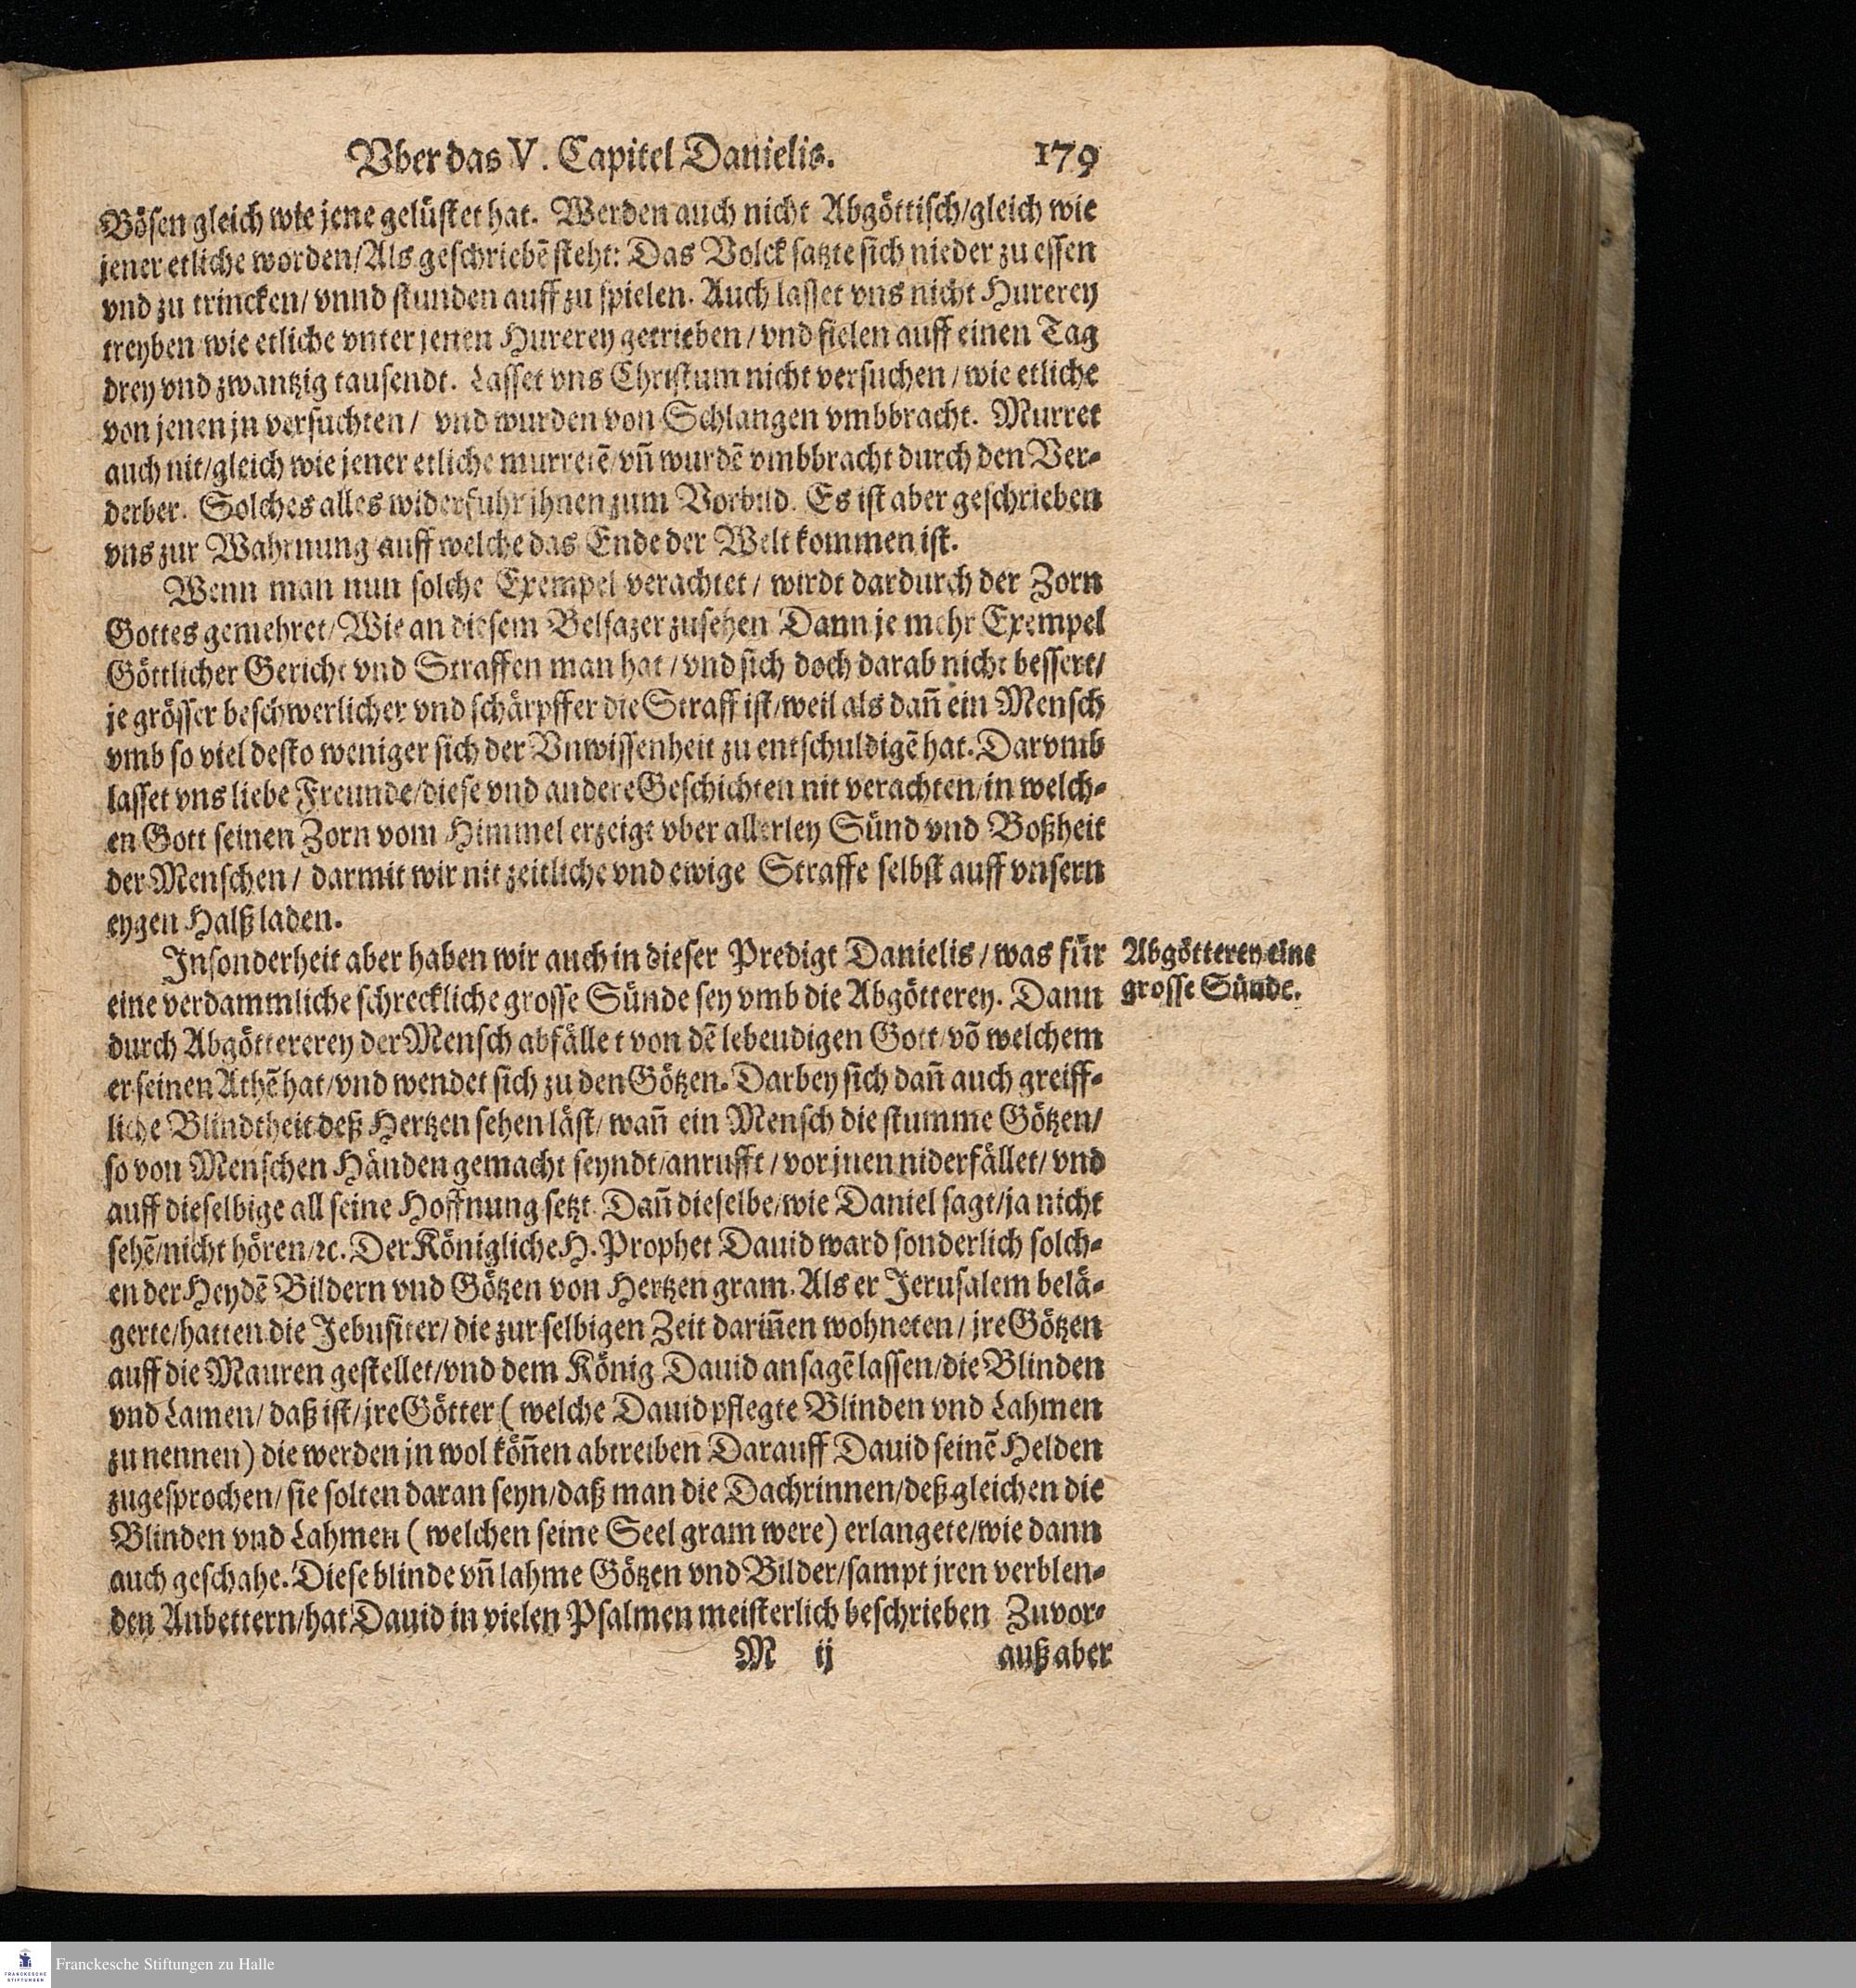 Vber das V. Capitel Danielis. 179
Bösen gleich wie jene gelüstet hat. Werden auch nicht Abgöttisch/gleich wie
jener etliche worden/Als geschriebẽ steht: Das Volck satzte sich nieder zu essen
vnd zu trincken/ vnnd stunden auff zu spielen. Auch lasset vns nicht Hurerey
treyben wie etliche vnter jenen Hurerey getrieben/ vnd fielen auff einen Tag
drey vnd zwantzig tausendt. Lasset vns Christum nicht versuchen/ wie etliche
von jenen jn versuchten/ vnd wurden von Schlangen vmbbracht. Murret
auch nit/gleich wie jener etliche murretẽ/vñ wurdẽ vmbbracht durch den Ver-
derber. Solches alles widerfuhr jhnen zum Vorbild. Es ist aber geschrieben
vns zur Wahrnung auff welche das Ende der Welt kommen ist.
Wenn man nun solche Exempel verachtet/ wirdt dardurch der Zorn
Gottes gemehret/Wie an diesem Belsazer zusehen Dann je mehr Exempel
Göttlicher Gericht vnd Straffen man hat/ vnd sich doch darab nicht bessert/
je grösser beschwerlicher vnd schärpffer die Straff ist/weil als dañ ein Mensch
vmb so viel desto weniger sich der Vnwissenheit zu entschuldigẽ hat. Darvmb
lasset vns liebe Freunde/diese vnd andere Geschichten nit verachten/in welch-
en Gott seinen Zorn vom Himmel erzeigt vber allerley Sünd vnd Boßheit
der Menschen/ darmit wir nit zeitliche vnd ewige Straffe selbst auff vnsern
eygen Halß laden.
Insonderheit aber haben wir auch in dieser Predigt Danielis/ was für
eine verdammliche schreckliche grosse Sünde sey vmb die Abgötterey. Dann
Abgötterey eine
grosse Sünde.
durch Abgöttererey der Mensch abfället von dẽ lebeudigen Gott/võ welchem
er seinen Athẽ hat/vnd wendet sich zu den Götzen. Darbey sich dañ auch greiff-
liche Blindtheit deß Hertzen sehen läst/ wañ ein Mensch die stumme Götzen/
so von Menschen Händen gemacht seyndt/anrufft/ vor jnen niderfället/ vnd
auff dieselbige all seine Hoffnung setzt. Dañ dieselbe/wie Daniel sagt/ja nicht
sehẽ/nicht hören/ꝛc. Der Königliche H. Prophet Dauid ward sonderlich solch-
en der Heydẽ Bildern vnd Götzen von Hertzen gram. Als er Jerusalem belä-
gerte/hatten die Jebusiter/ die zur selbigen Zeit dariñen wohneten/ jre Götzen
auff die Mauren gestellet/vnd dem König Dauid ansagẽ lassen/die Blinden
vnd Lamen/ daß ist/jre Götter (welche Dauid pflegte Blinden vnd Lahmen
zu nennen) die werden jn wol köñen abtreiben Darauff Dauid seinẽ Helden
zugesprochen/ sie solten daran seyn/daß man die Dachrinnen/deßgleichen die
Blinden vnd Lahmen (welchen seine Seel gram were) erlangete/wie dann
auch geschahe. Diese blinde vñ lahme Götzen vnd Bilder/sampt jren verblen-
den Anbettern/hat Dauid in vielen Psalmen meisterlich beschrieben Zuvor-
M ij auß aber
Franckesche Stiftungen zu Halle
FRANCKESCHE
STIFTUNGEN